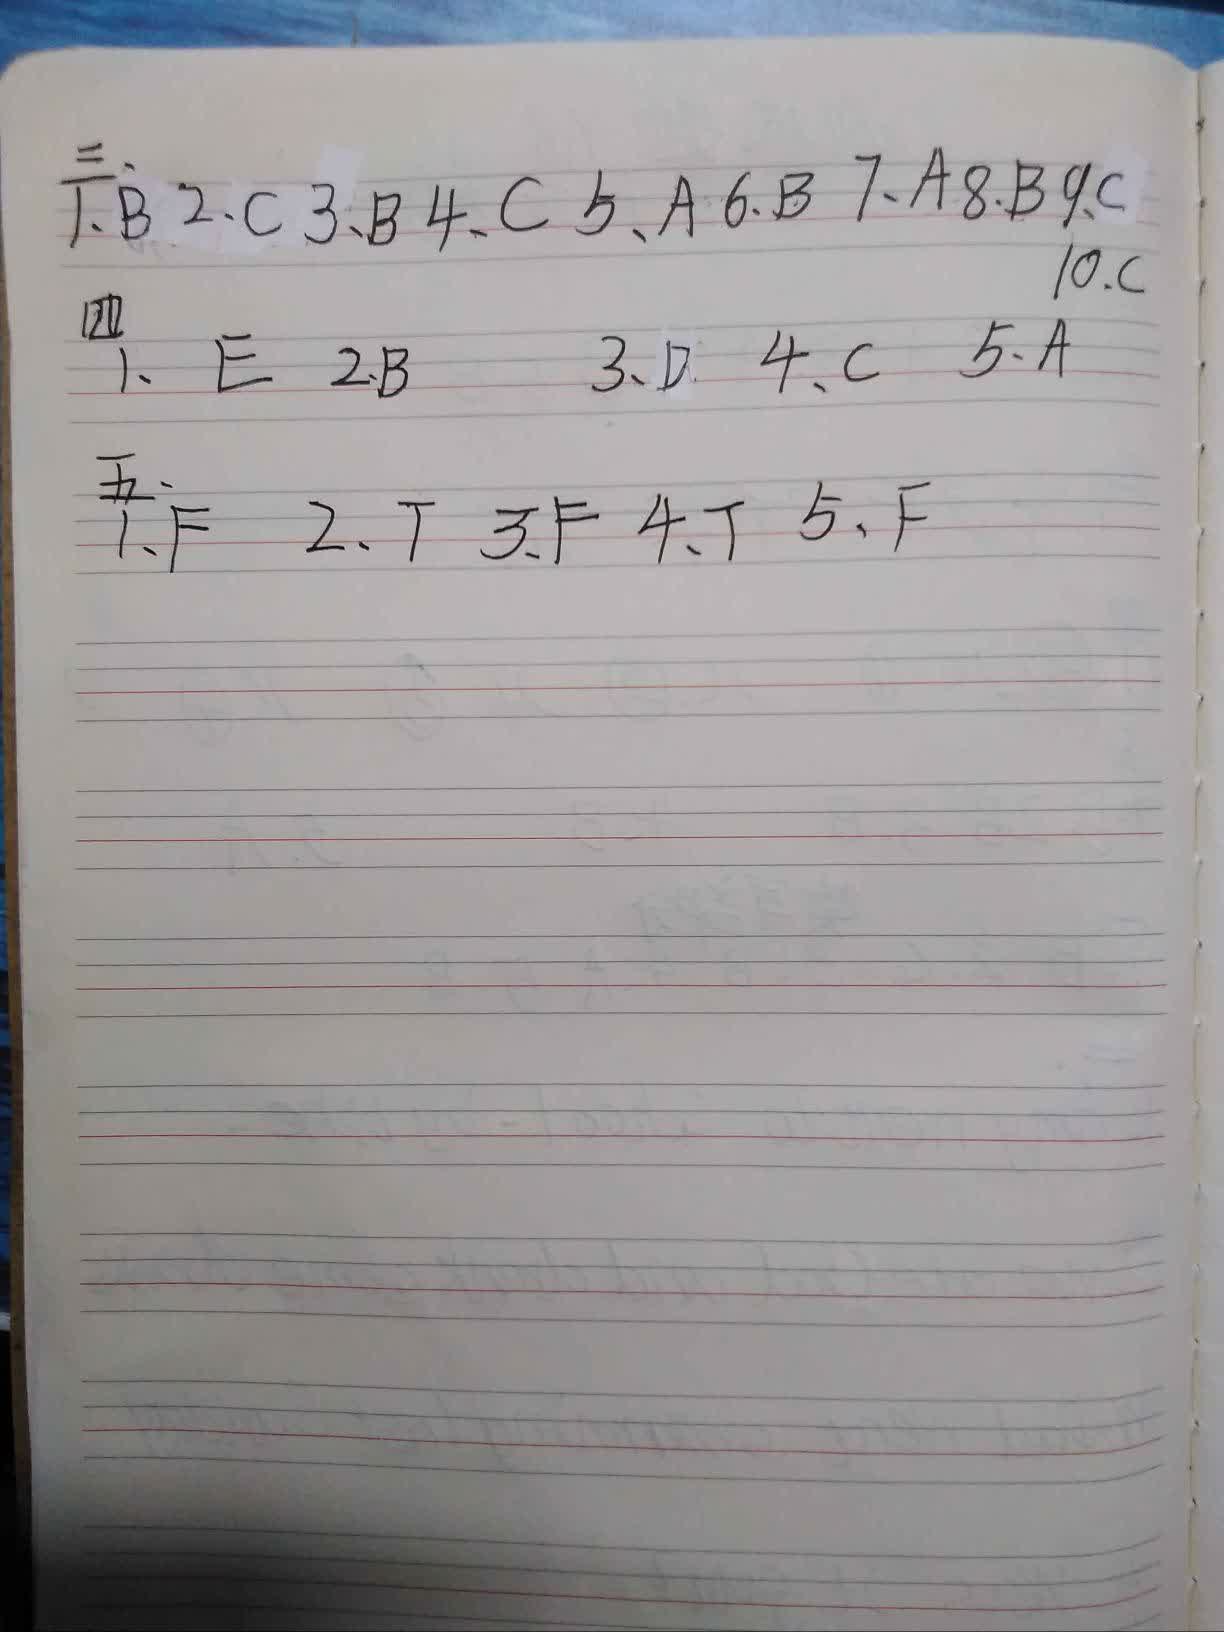 三、
1.B 2.C 3.B 4.C 5、A 6.B 7.A 8.B 9.C
10.C
四
1、E 2.B 3.D 4、C 5.A
五、
1.F 2、T 3.F 4.T 5、F